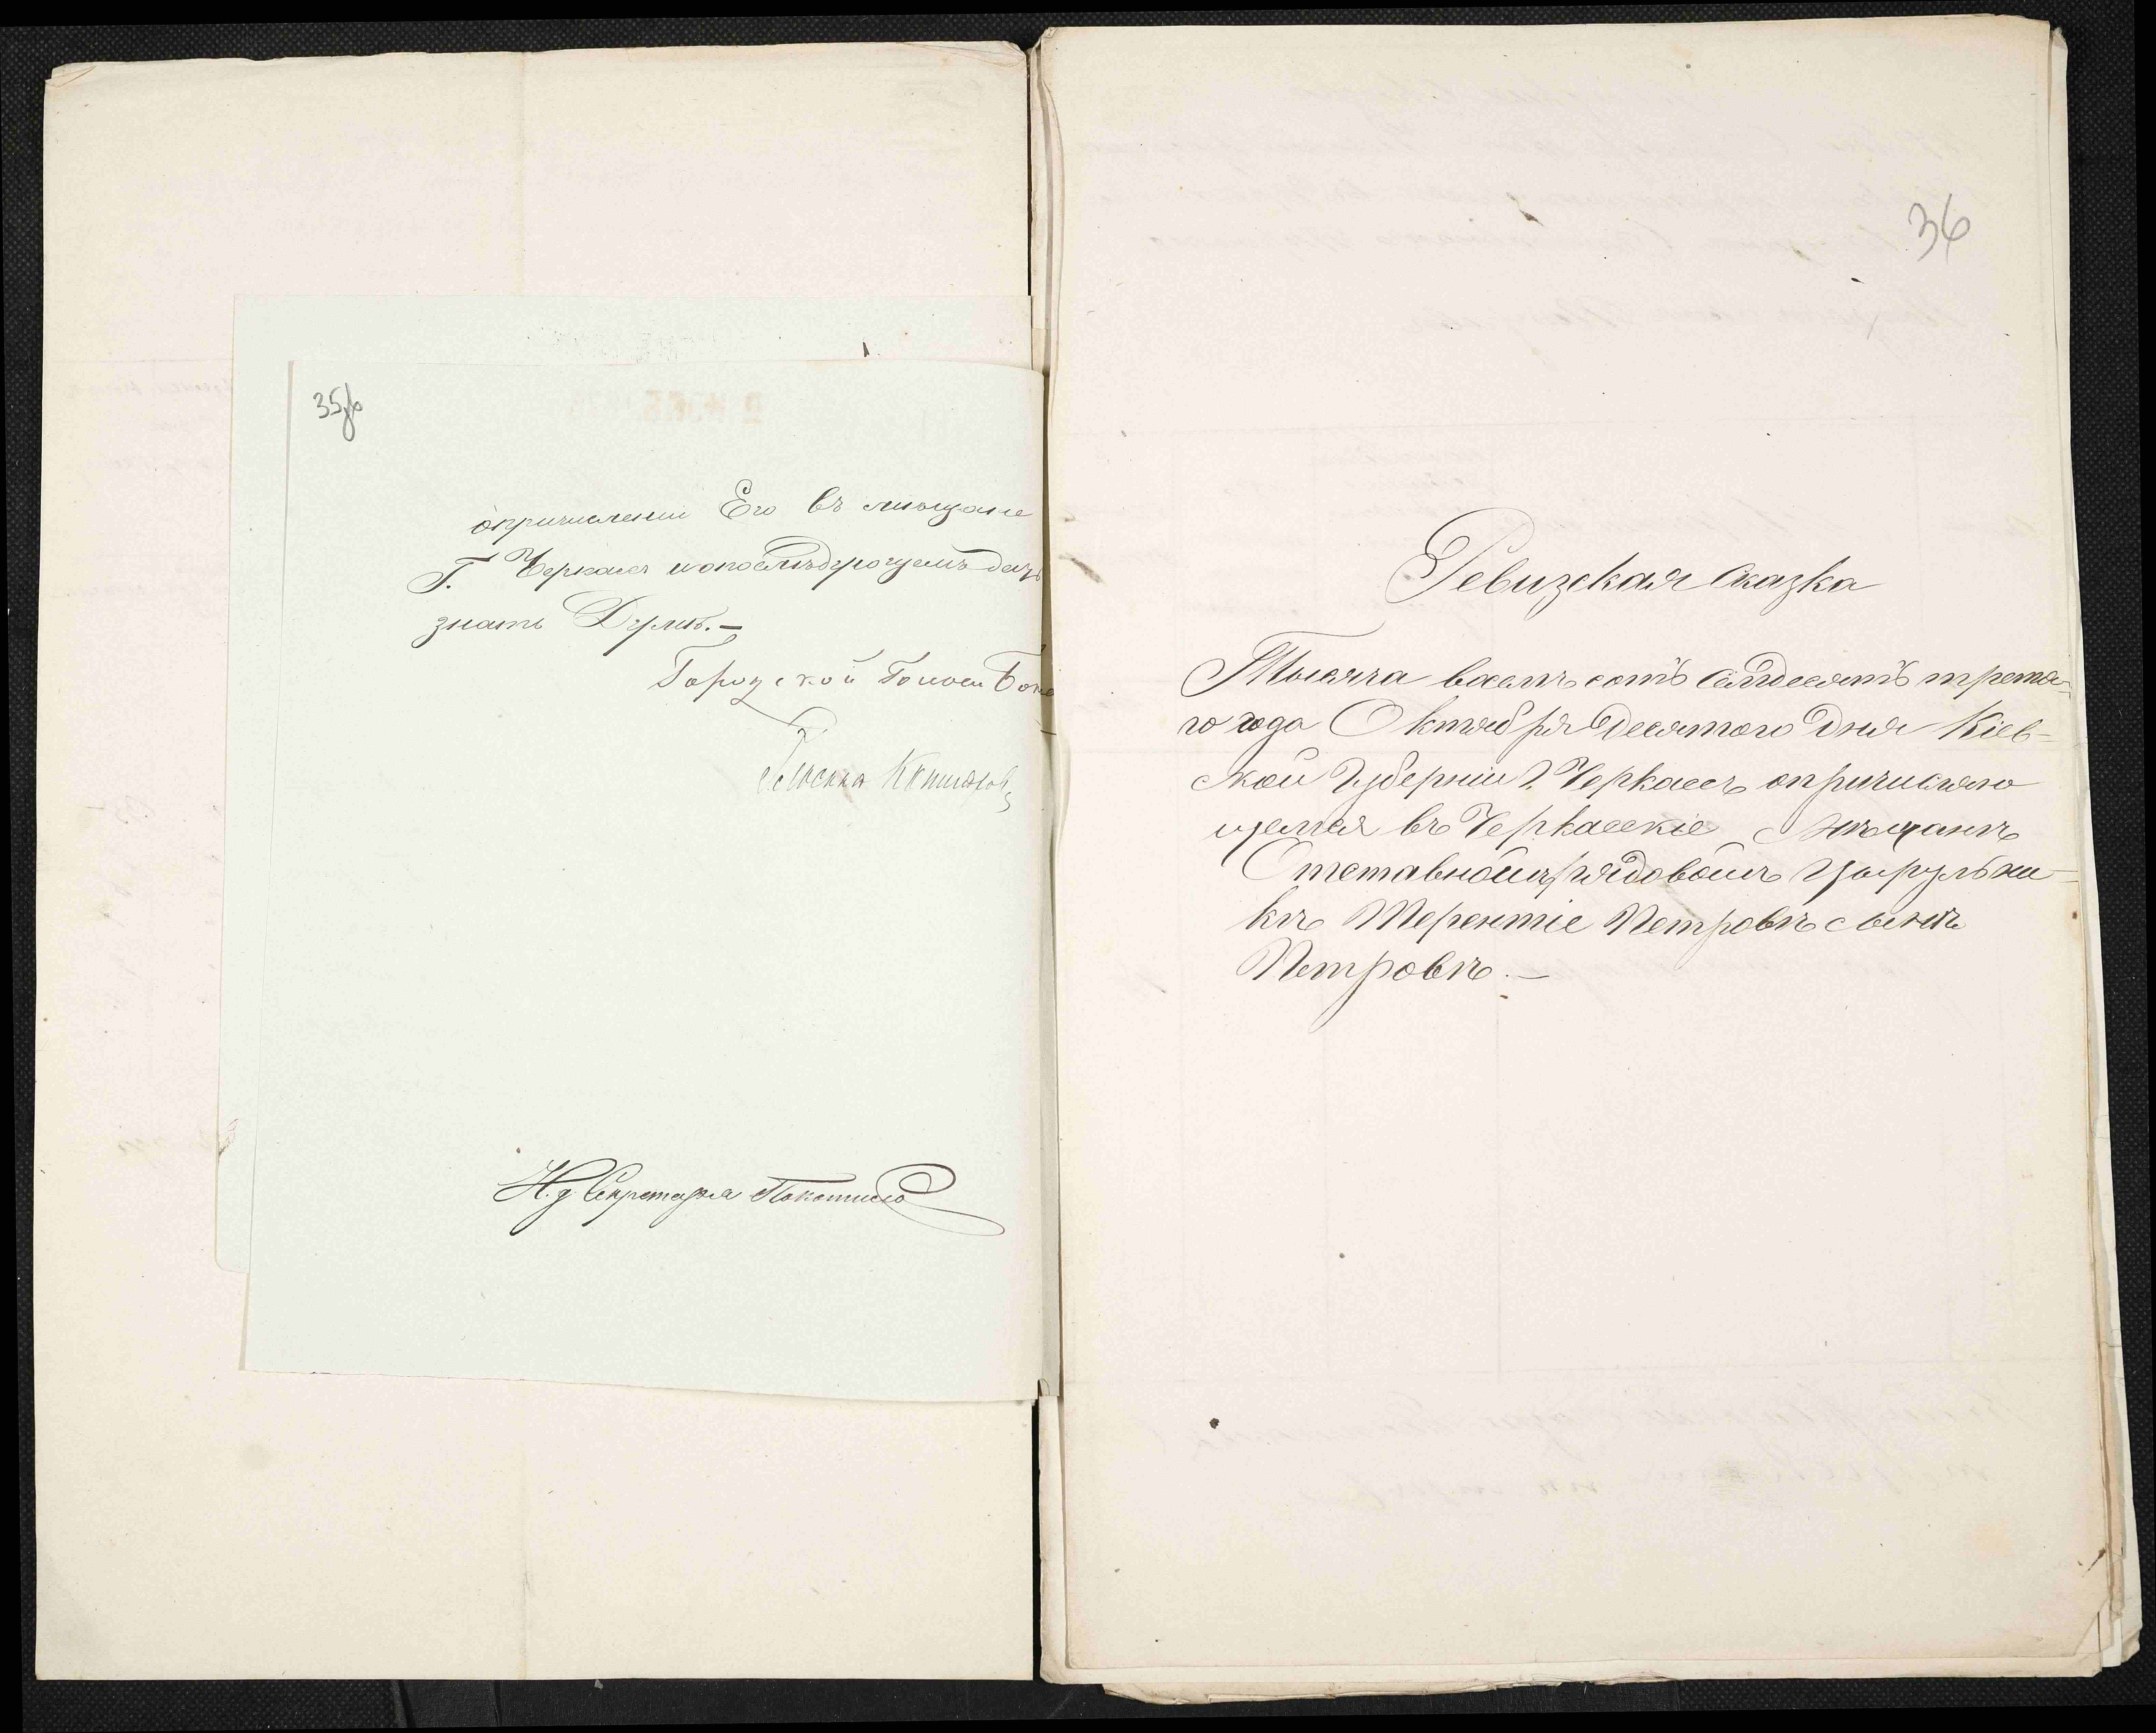 35об
опричислении Его въ мѣщане
Г. Черкассъ и опослѣдующемъ дать
знать Думѣ.—
Городской Голова
И. д. Секретаря Покотило
36
Ревизская Сказка
Тысяча восемь сотъ семдесятъ третя-
го года Октября десятого дня Кіев-
ской Губерніи Г. Черкассъ опричисляю
щемся въ Черкасскіе Мѣщанѣ
Отставномъ рядовомъ Цырульни-
кѣ Терентіе Петровѣ сынѣ
Петровѣ.—